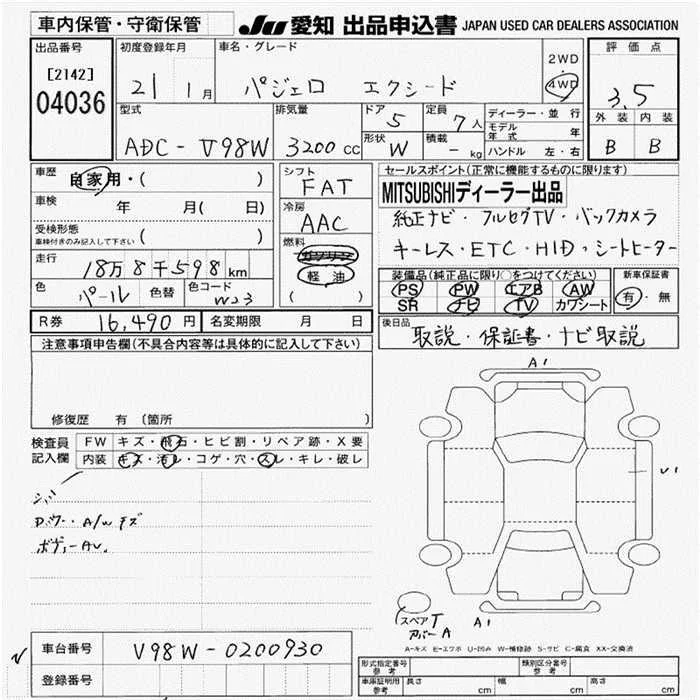 車内保管・守衛保管
JU 愛知 出品申込書 JAPAN USED CAR DEALERS ASSOCIATION
出品番号
[2142]
04036
初度登録年月
21 1月
車名・グレード
パジェロ エクシード
2WD
4WD
評価点
3.5
外装 内装
B B
型式
ADC-V98W
排気量
3200cc
ドア
5
形状
W
定員
7人
積載
- kg
ディーラー・並行
モデル年 年
ハンドル 左・右
車歴
自家用・( )
車検 年 月( 日)
受検形態
車検付きのみ記入して下さい ( )
走行
18万8千598km
色
パール
色替
色コード
W23
シフト
FAT
冷房
AAC
燃料
ガソリン
軽油
( )
セールスポイント(正常に機能するものに限ります)
MITSUBISHIディーラー出品
純正ナビ・フルセグTV・バックカメラ
キーレス・ETC・HID・シートヒーター
装備品(純正品に限り○をつけてください)
PS PW エアB AW
SR ナビ TV カワシート
新車保証書
有・無
R券 16,490円 名変期限 月 日
後日品
取説・保証書・ナビ取説
注意事項申告欄(不具合内容等は具体的に記入して下さい)
修復歴 有 (箇所
検査員
記入欄
FW キズ・飛石・ヒビ割・リペア跡・X要
内装 キズ・汚レ・コゲ・穴・スレ・キレ・破レ
A/Wキズ
A1
U1
A1
スペアT
カバーA
A-キズ E-エクボ U-凹み W-補修跡 S-サビ C-腐食 XX-交換済
車台番号 V98W-0200930
登録番号
型式指定番号
参考
類別区分番号
参考
車庫証明用
参考
長さ cm 幅 cm 高さ cm